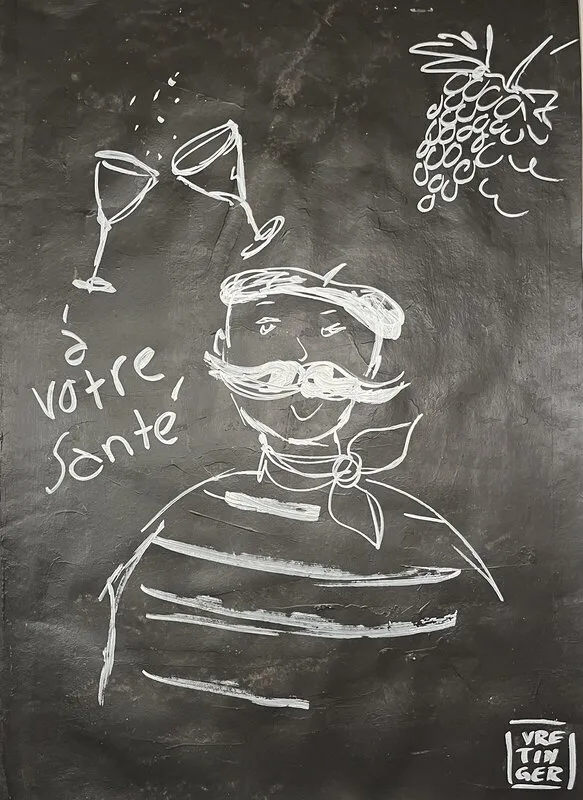 à
votre
Santé
VRE
TIN
GER